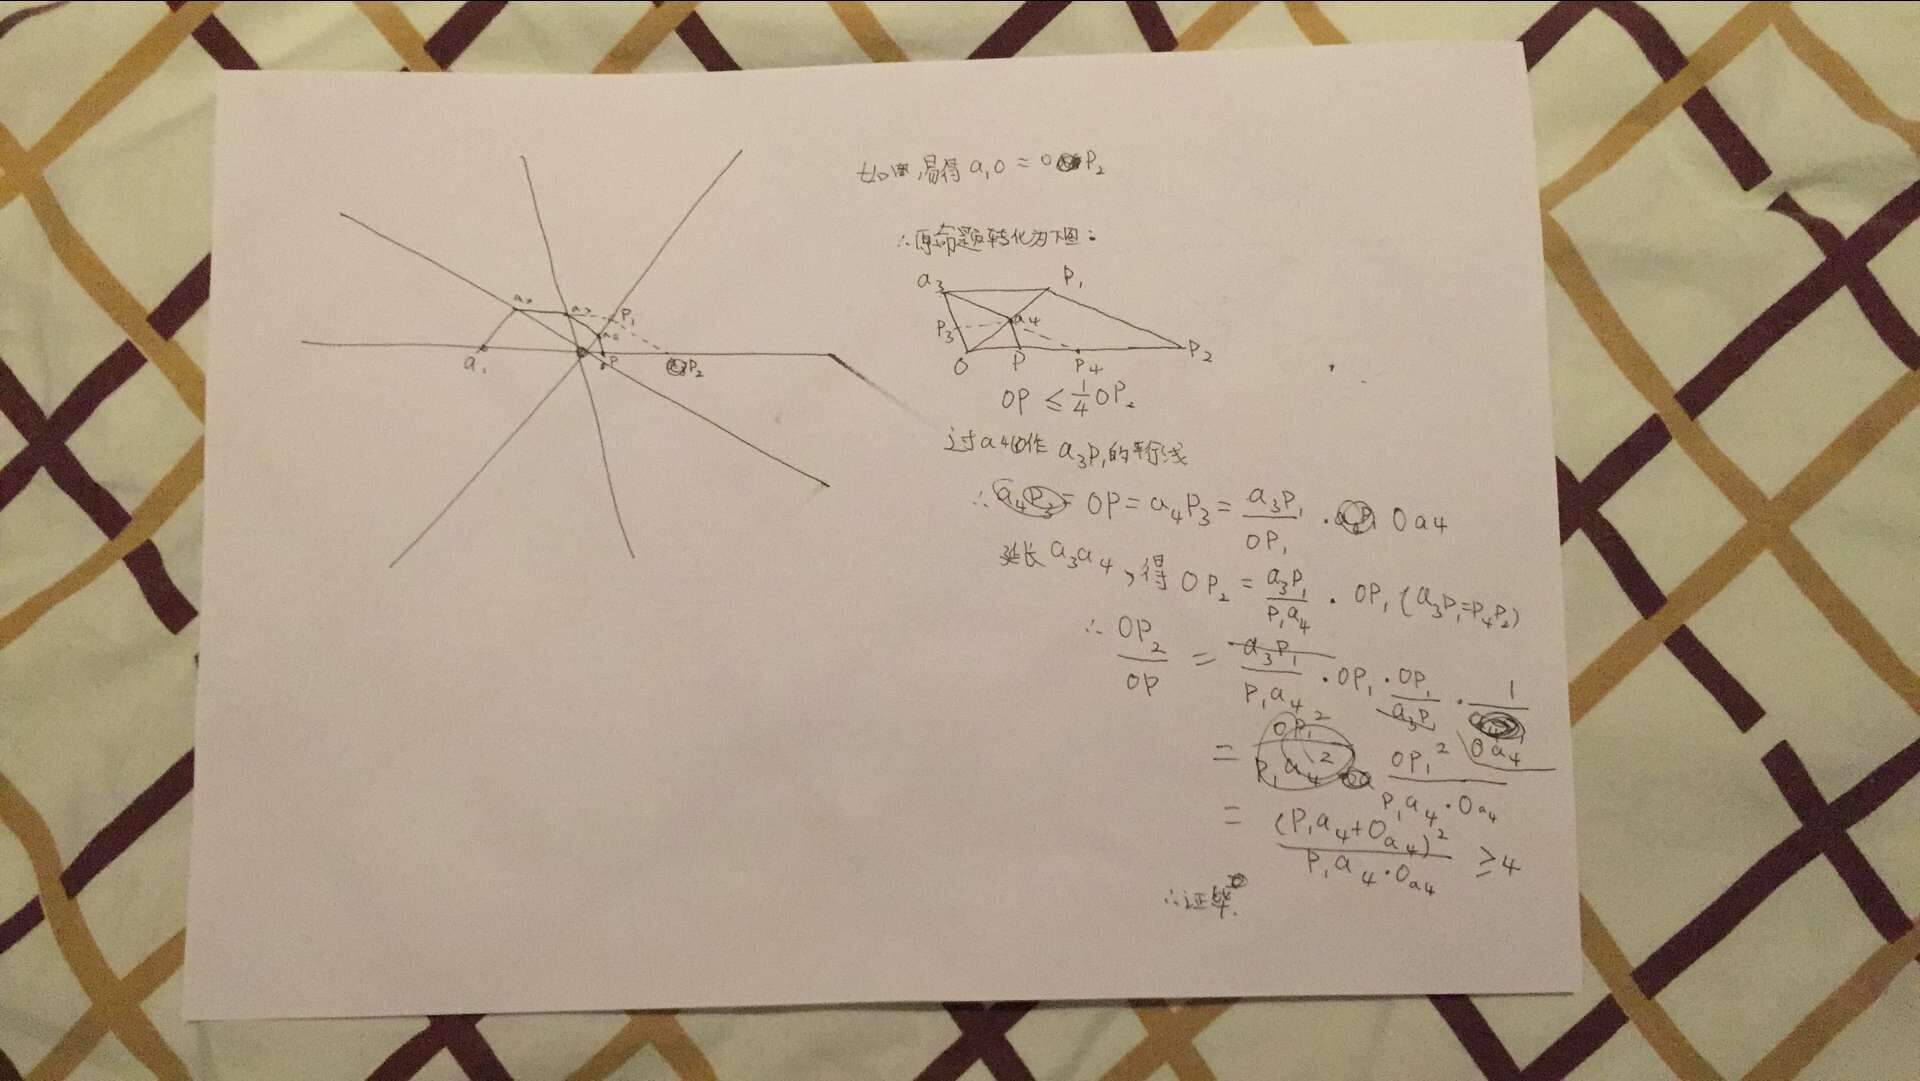 如图,易得 a₁O = OP₂
∴原命题转化为下图:
a₃ P₁
P₃ a₄
O P P₄ P₂
OP ≤ 1/4 OP₂
过a₄作 a₃P₁的平行线
∴ OP = a₄P₃ = a₃P₁/OP₁ · Oa₄
延长 a₃a₄, 得 OP₂ = a₃P₁/P₁a₄ · OP₁ (a₃P₁=P₄P₂)
∴ OP₂/OP = a₃P₁/P₁a₄ · OP₁ · OP₁/a₃P₁ · 1/Oa₄
= OP₁²/P₁a₄·Oa₄
= (P₁a₄+Oa₄)²/P₁a₄·Oa₄ ≥4
∴证毕.
a₂ a₃ P₁
a₄
a₁ P P₂